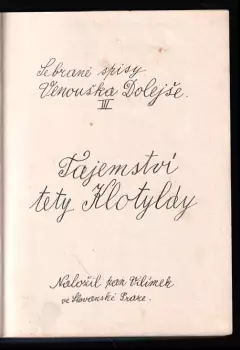 Sebrané spisy
Venouška Dolejše.
III
Tajemství
tety Klotyldy
Naložil pan Vilímek
ve Slovanské Praze.